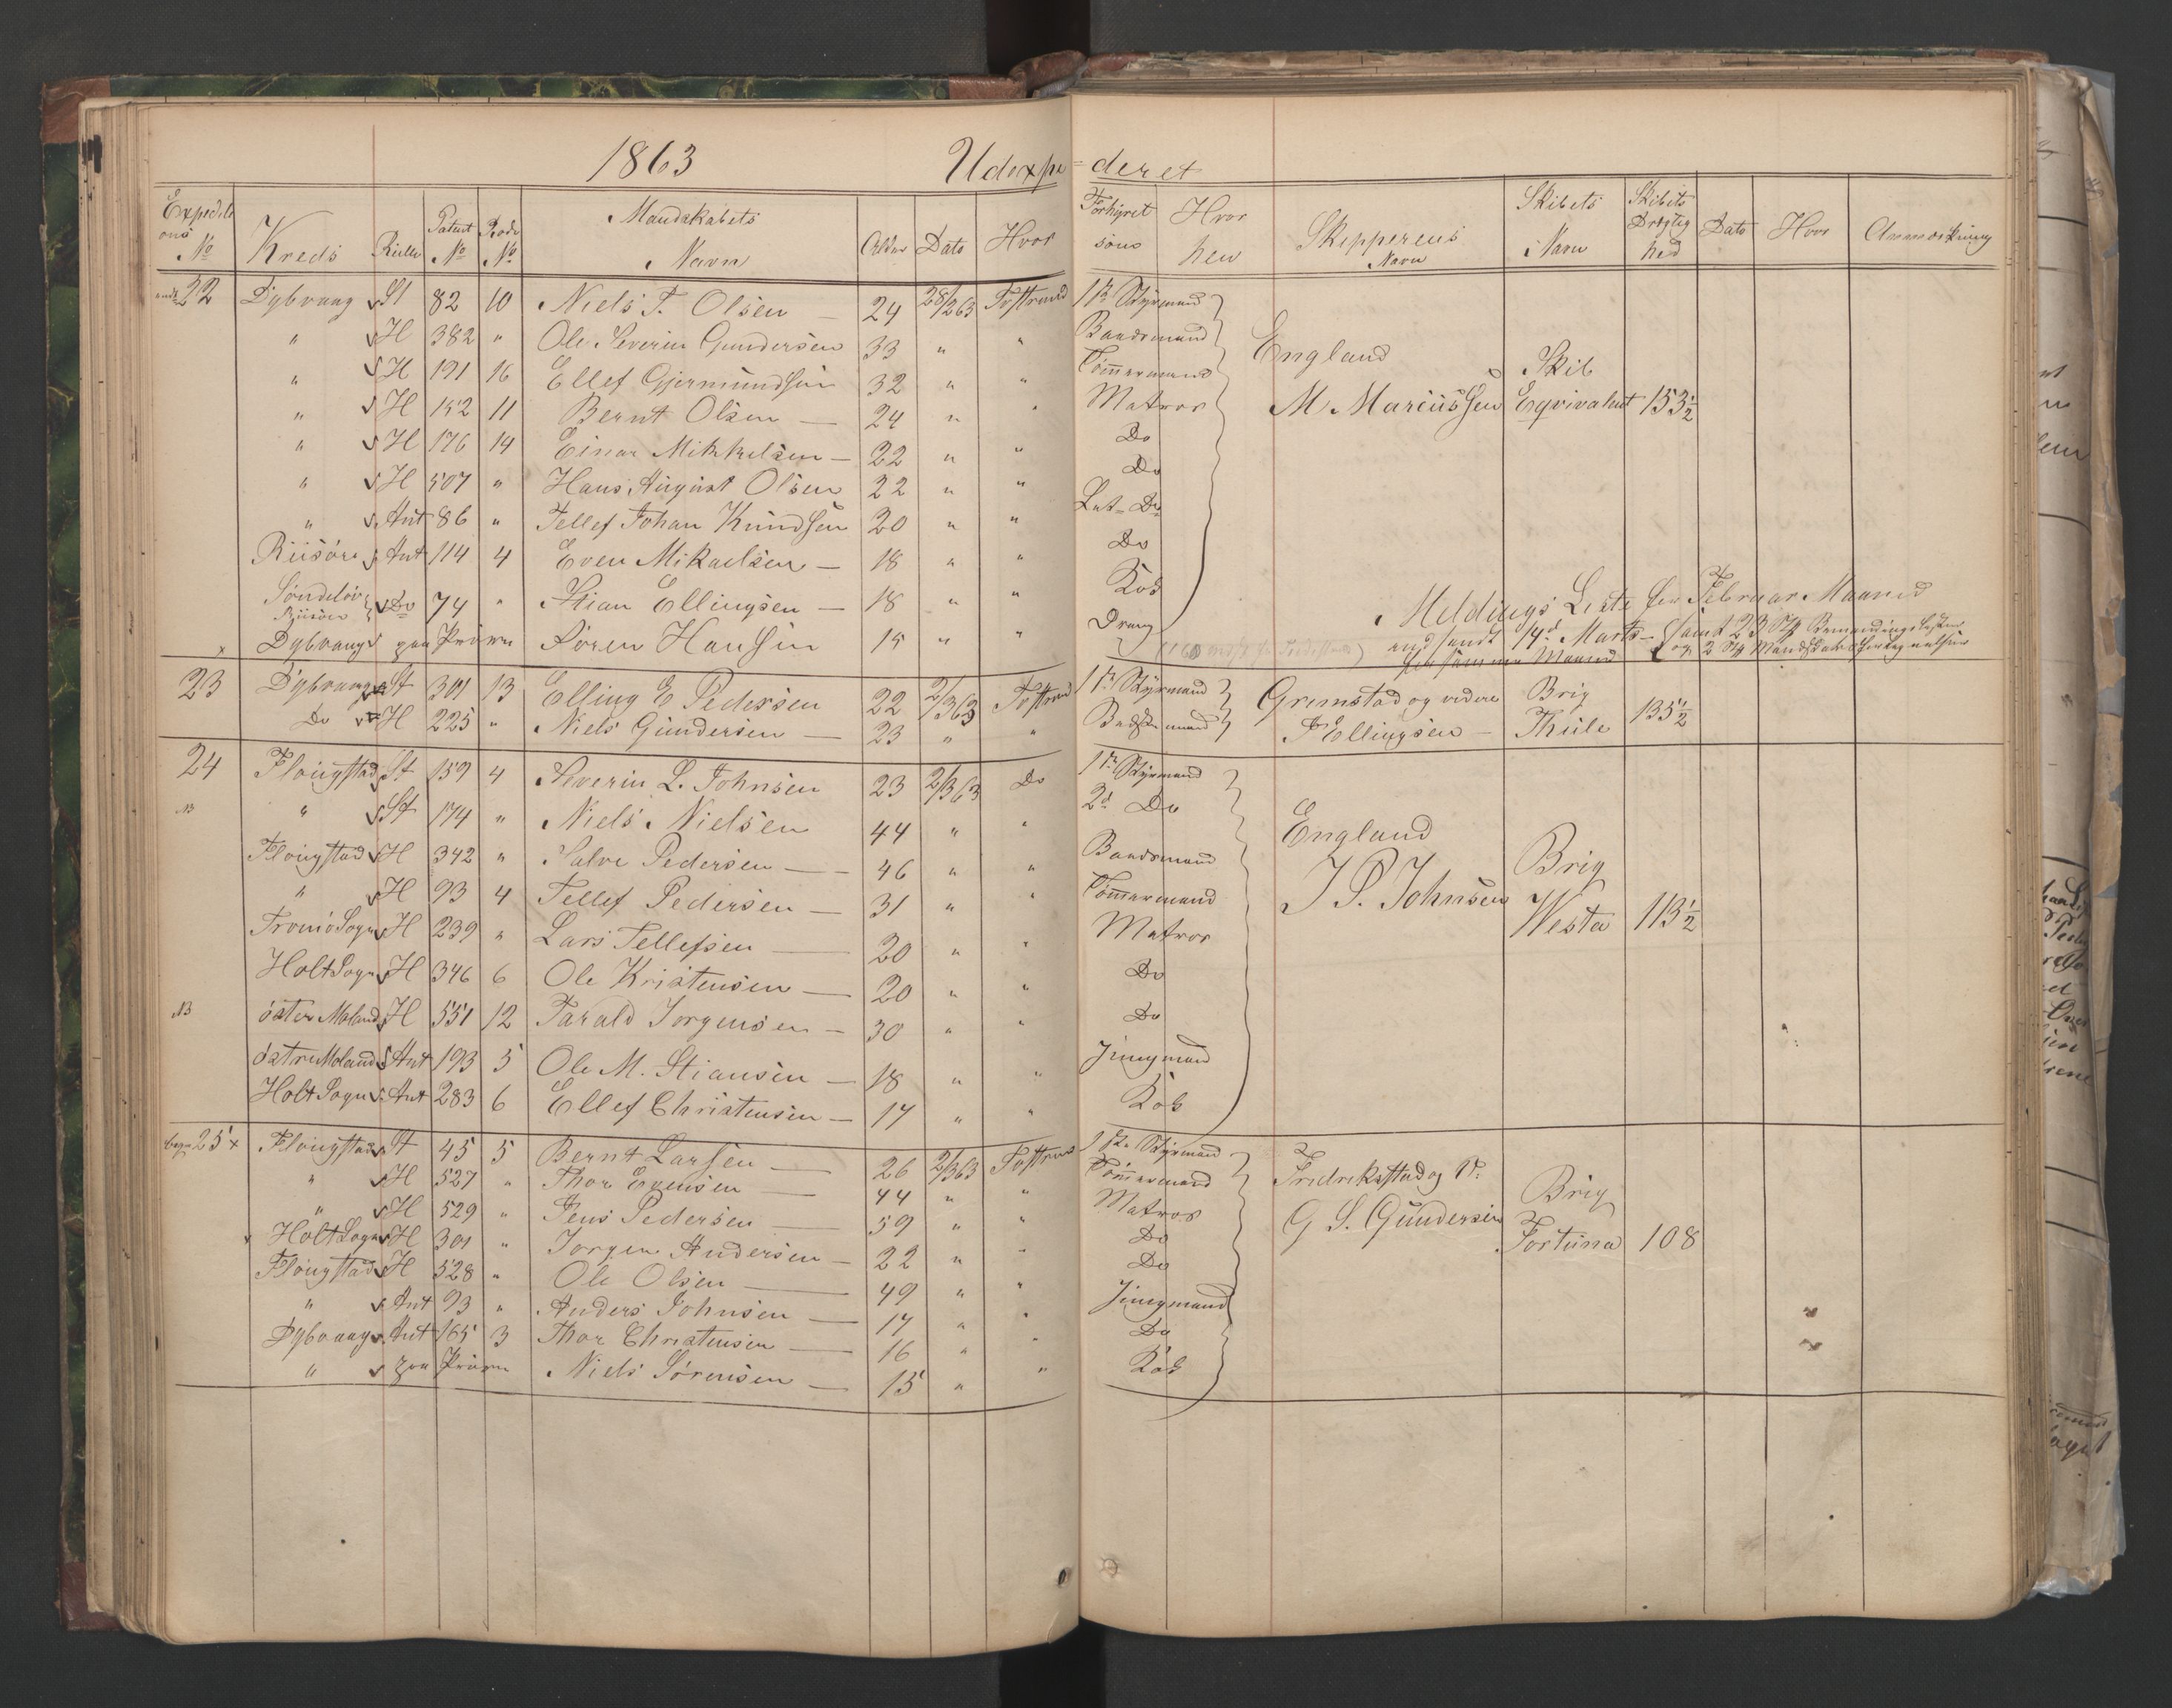 1863 Udexpe=deret
Expeditions No Kreds Rulle Patent No Rode No Mandskabets Navn Alder Dato Hvor Forhyret som Hvor hen Skipperens Navn Skibets Navn Skibets Drægtighed Dato Hvor Anmærkning
22 Dybvaag St 82 10 Niels T. Olsen — 24 28/2 63 Tvestrand 1st Styrmand
" H 382 " Ole Severin Gundersen 33 " " Baadsmand England
" H 191 16 Ellef Gjermundsen 32 " " Tømmermand Skib
" H 152 11 Bernt Olsen — 24 " " Matros M. Marcussen Eqvivalent 153½
" H 176 14 Einar Mikkelsen — 22 " " Do
" H 507 " Hans August Olsen 22 " " Do
" Ant 86 " Tellef Johan Knudsen 20 " " Let- Do
Riisöer Ant 114 4 Even Mikaelsen — 18 " " Do
Søndeløv Riisöer Do 74 " Stian Ellingsen — 18 " " Kok Meldings Liste for Februar Maaned
x Dybvaag paa Prøve Søren Hansen 15 " " Dreng indsendt 14d Marts - samt 23 Stk Bemandingslister
for samme Maaned og 2 Stk
23 Dybvaag St 301 13 Elling E Pedersen 22 2/3 63 Tvestrand 1st Styrmand Grimstad og videre Brig
Do H 225 " Niels Gundersen — 23 " " Baadsmand J Ellingsen — Thule 135½
24 Flougstad St 159 4 Severin L. Johnsen 23 2/3 63 Do 1st Styrmand
NB " St 174 " Niels Nielsen 44 " " 2d Do England
Flougstad H 342 " Salve Pedersen — 46 " " Baadsmand Brig
" H 93 4 Tellef Pedersen — 31 " " Tømmermand J P. Johnsen
Tromö Sogn H 239 " Lars Tellefsen — 20 " " Matros Westa 113½
Holt Sogn H 346 6 Ole Kristensen — 20 " " Do
NB öster Moland H 551 12 Tarald Jorgensen — 30 " " Do
östre Moland Ant 193 5 Ole M. Stiansen — 18 " " Jungmand
Holt Sogn Ant 283 6 Ellef Christensen — 17 " " Kok
25 x Flougstad St 45 5 Bernt Larsen — 26 2/3 63 Tvestrand 1ste Styrmand
" H 527 " Thor Evensen — 44 " " Tømmermand Fredrikstad og V. Brig
" H 529 " Jens Pedersen — 59 " " Matros G S. Gundersen
x Holt Sogn H 301 " Jorgen Andersen — 22 " " Do Fortuna 108
Flougstad H 528 " Ole Olsen — 49 " " Do
" Ant 93 " Anders Johnsen — 17 " " Jungmand
Dybvaag Ant 165 3 Thor Christensen — 16 " " Do
" paa Prøve Niels Sørensen — 15 " " Kok